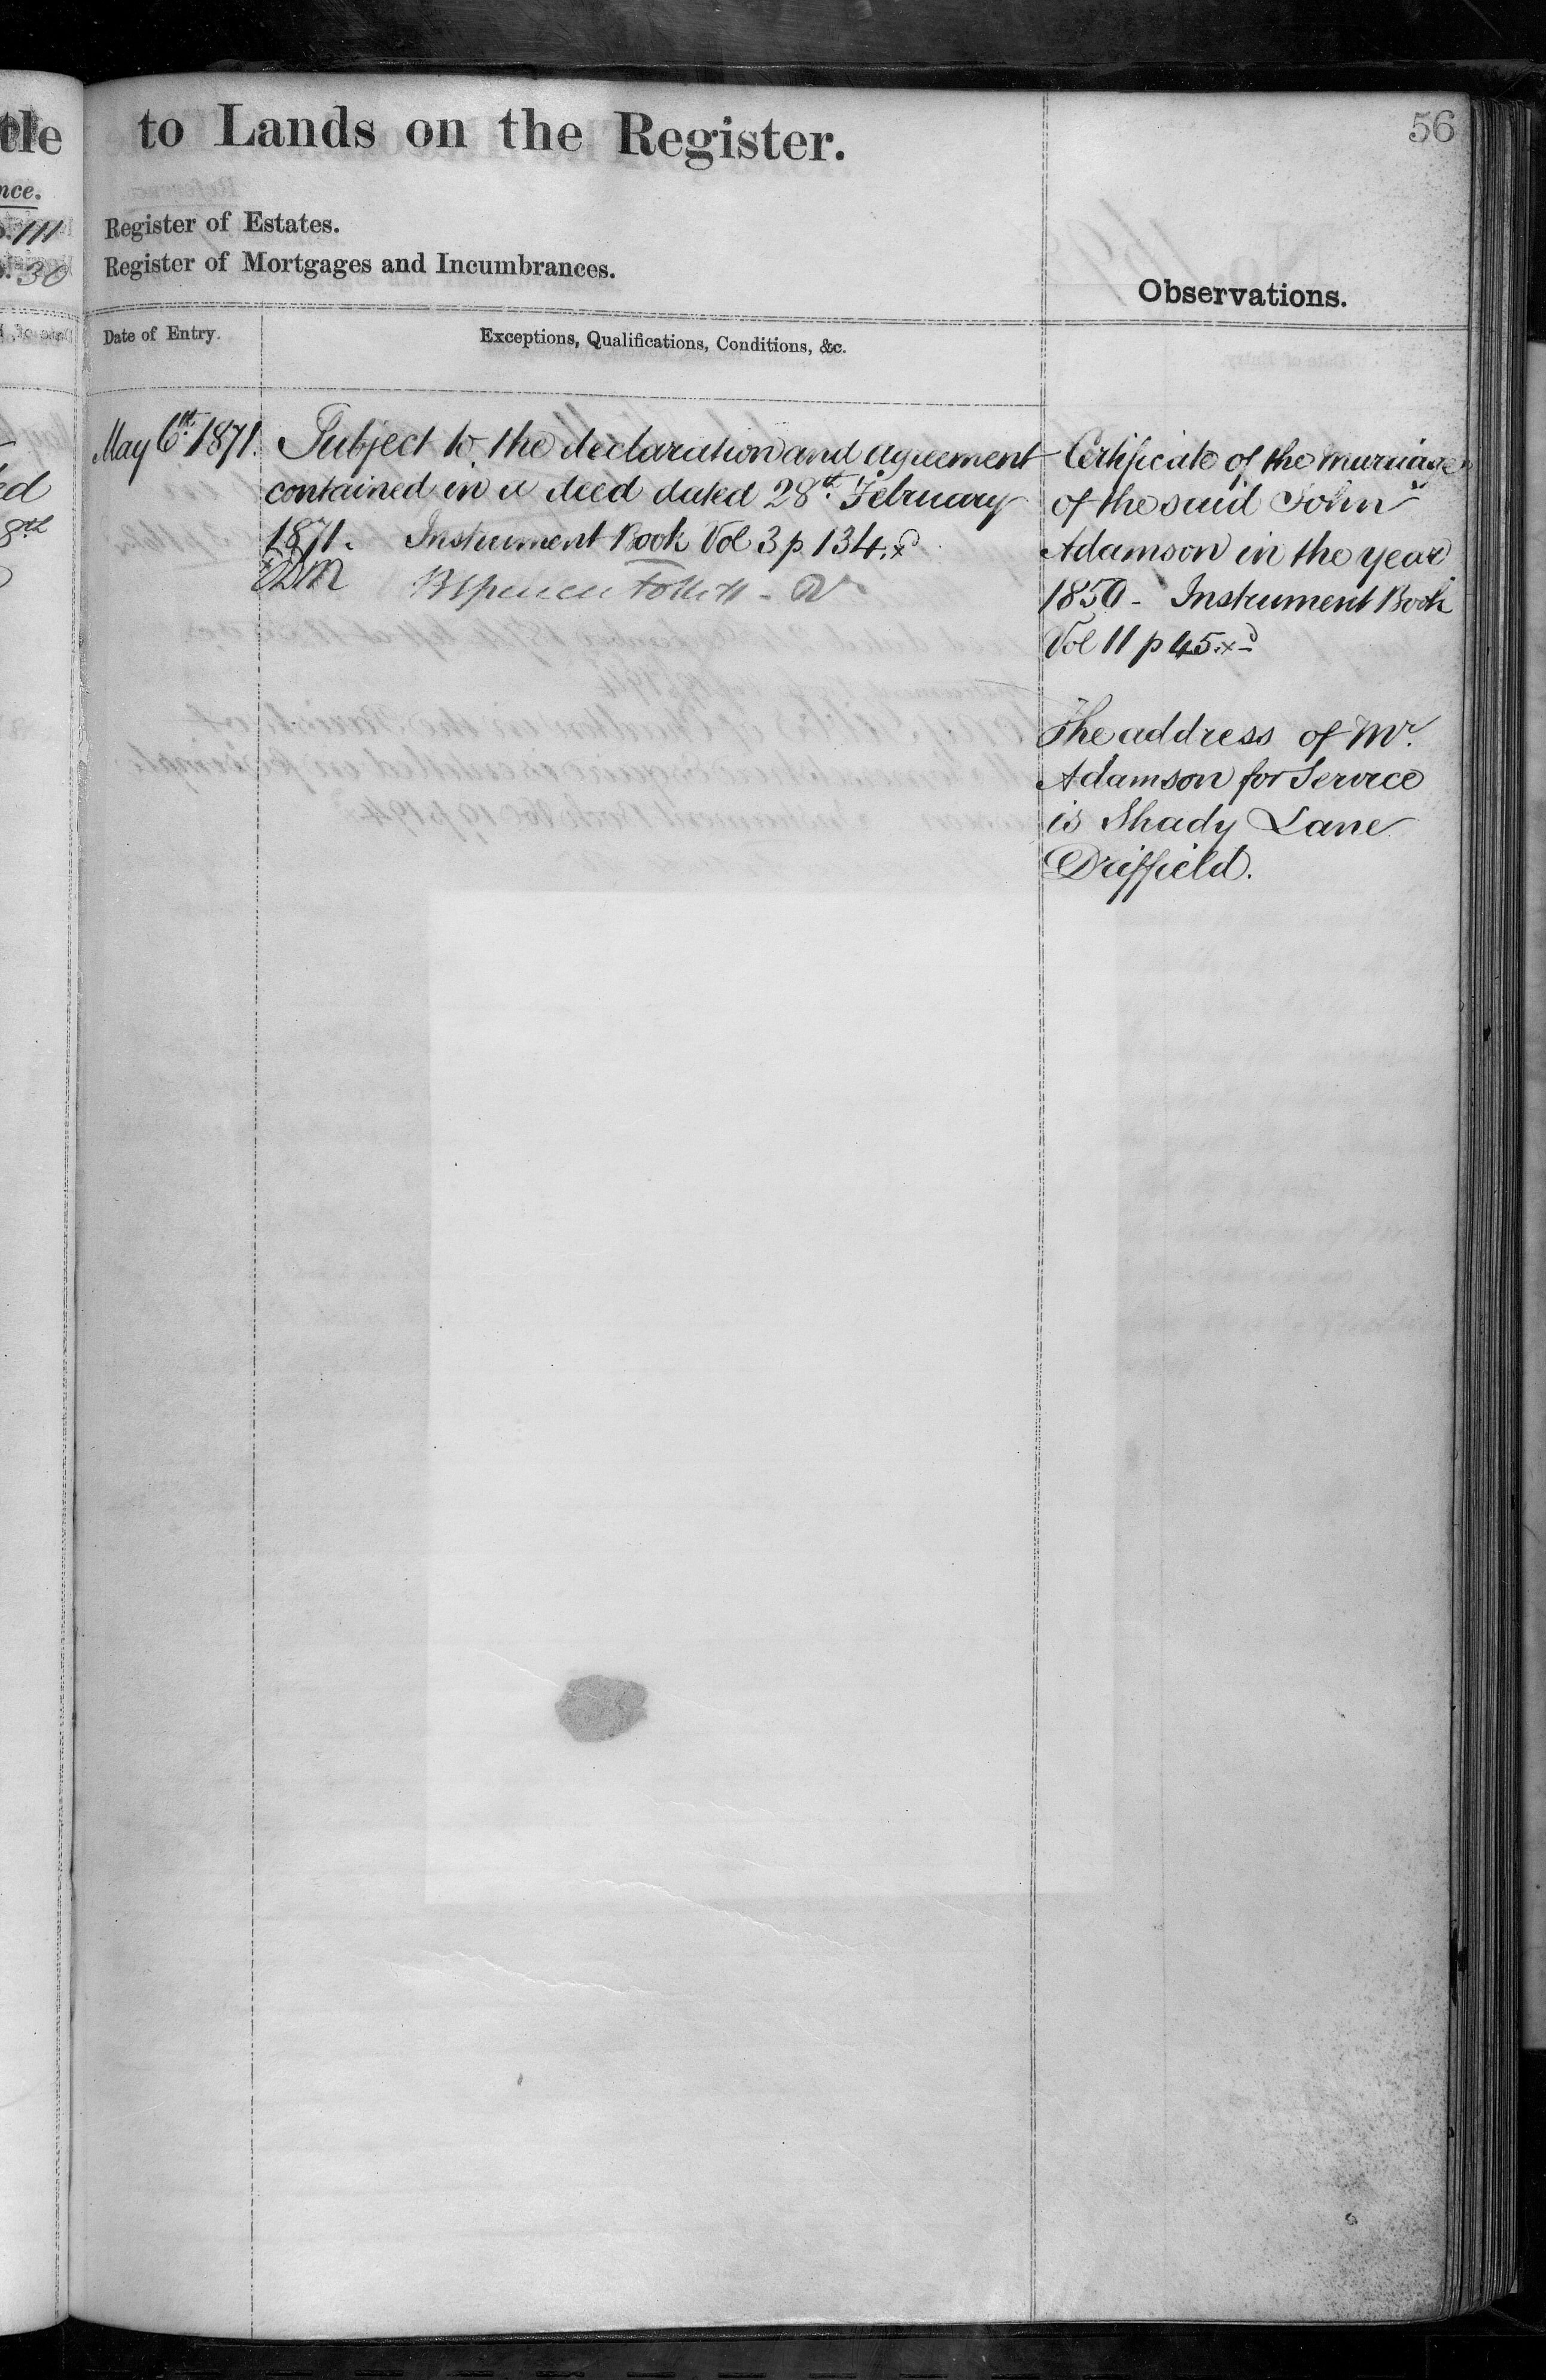 56
tle to Lands on the Register.
nce.
111 Register of Estates.
30 Register of Mortgages and Incumbrances.
Observations.
Date of Entry. Exceptions, Qualifications, Conditions, &c.
May 6th 1871. Subject to the declaration and agreement
contained in a deed dated 28th February
1871. Instrument Book Vol 3 p 134. xd
EDM
Certificate of the marriage
of the said John
Adamson in the year
1850 - Instrument Book
Vol 11 p 45. xd
The address of Mr.
Adamson for Service
is Shady Lane
Driffield.
ed
8th